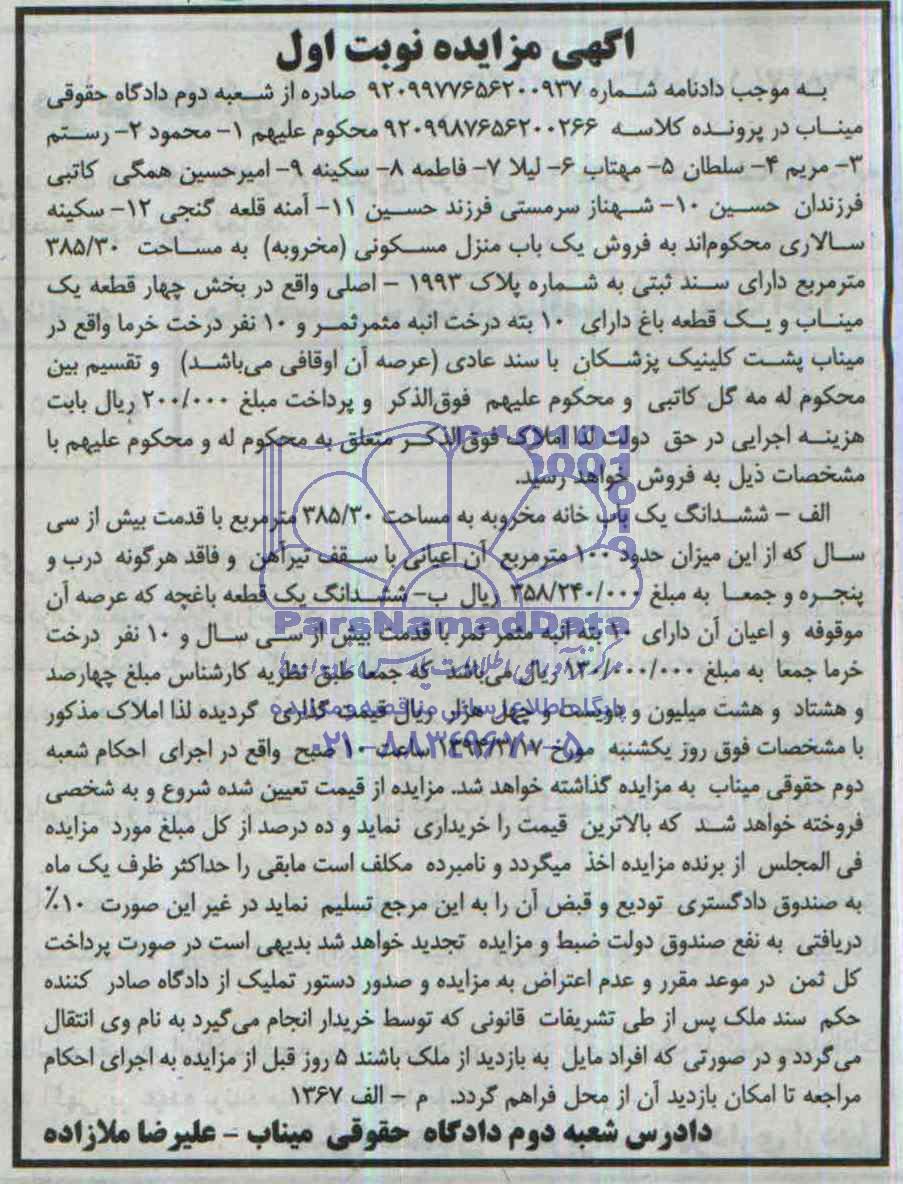 اگهی مزایده نوبت اول
به موجب دادنامه شماره ۹۲۰۹۹۷۷۶۵۶۲۰۰۹۳۷ صادره از شعبه دوم دادگاه حقوقی
میناب در پرونده کلاسه ۹۲۰۹۹۸۷۶۵۶۲۰۰۲۶۶ محکوم علیهم ۱- محمود ۲- رستم
۳- مریم ۴- سلطان ۵- مهتاب ۶- لیلا ۷- فاطمه ۸- سکینه ۹- امیرحسین همگی کاتبی
فرزندان حسین ۱۰- شهناز سرمستی فرزند حسین ۱۱- آمنه قلعه گنجی ۱۲- سکینه
سالاری محکوم‌اند به فروش یک باب منزل مسکونی (مخروبه) به مساحت ۳۸۵/۳۰
مترمربع دارای سند ثبتی به شماره پلاک ۱۹۹۳ – اصلی واقع در بخش چهار قطعه یک
میناب و یک قطعه باغ دارای ۱۰ بته درخت انبه مثمرثمر و ۱۰ نفر درخت خرما واقع در
میناب پشت کلینیک پزشکان با سند عادی (عرصه آن اوقافی می‌باشد) و تقسیم بین
محکوم له مه گل کاتبی و محکوم علیهم فوق‌الذکر و پرداخت مبلغ ۲۰۰/۰۰۰ ریال بابت
هزینه اجرایی در حق دولت لذا املاک فوق‌الذکر متعلق به محکوم له و محکوم علیهم با
مشخصات ذیل به فروش خواهد رسید.
الف – ششدانگ یک باب خانه مخروبه به مساحت ۳۸۵/۳۰ مترمربع با قدمت بیش از سی
سال که از این میزان حدود ۱۰۰ مترمربع آن اعیانی با سقف تیرآهن و فاقد هرگونه درب و
پنجره و جمعا به مبلغ ۳۵۸/۲۴۰/۰۰۰ ریال ب- ششدانگ یک قطعه باغچه که عرصه آن
موقوفه و اعیان آن دارای ۱۰ بته انبه مثمر ثمر با قدمت بیش از سی سال و ۱۰ نفر درخت
خرما جمعا به مبلغ ۱۳۰/۰۰۰/۰۰۰ ریال می‌باشد که جمعا طبق نظریه کارشناس مبلغ چهارصد
و هشتاد و هشت میلیون و دویست و چهل هزار ریال قیمت گذاری گردیده لذا املاک مذکور
با مشخصات فوق روز یکشنبه مورخ ۱۳۹۴/۳/۱۷ ساعت ۱۰ صبح واقع در اجرای احکام شعبه
دوم حقوقی میناب به مزایده گذاشته خواهد شد. مزایده از قیمت تعیین شده شروع و به شخصی
فروخته خواهد شد که بالاترین قیمت را خریداری نماید و ده درصد از کل مبلغ مورد مزایده
فی المجلس از برنده مزایده اخذ میگردد و نامبرده مکلف است مابقی را حداکثر ظرف یک ماه
به صندوق دادگستری تودیع و قبض آن را به این مرجع تسلیم نماید در غیر این صورت ۱۰٪
دریافتی به نفع صندوق دولت ضبط و مزایده تجدید خواهد شد بدیهی است در صورت پرداخت
کل ثمن در موعد مقرر و عدم اعتراض به مزایده و صدور دستور تملیک از دادگاه صادر کننده
حکم سند ملک پس از طی تشریفات قانونی که توسط خریدار انجام می‌گیرد به نام وی انتقال
می‌گردد و در صورتی که افراد مایل به بازدید از ملک باشند ۵ روز قبل از مزایده به اجرای احکام
مراجعه تا امکان بازدید آن از محل فراهم گردد. م - الف ۱۳۶۷
دادرس شعبه دوم دادگاه حقوقی میناب - علیرضا ملازاده
ParsNamadData
پایگاه اطلاع رسانی مناقصه و مزایده
۰۲۱-۸۸۳۴۹۶۷۰-۵